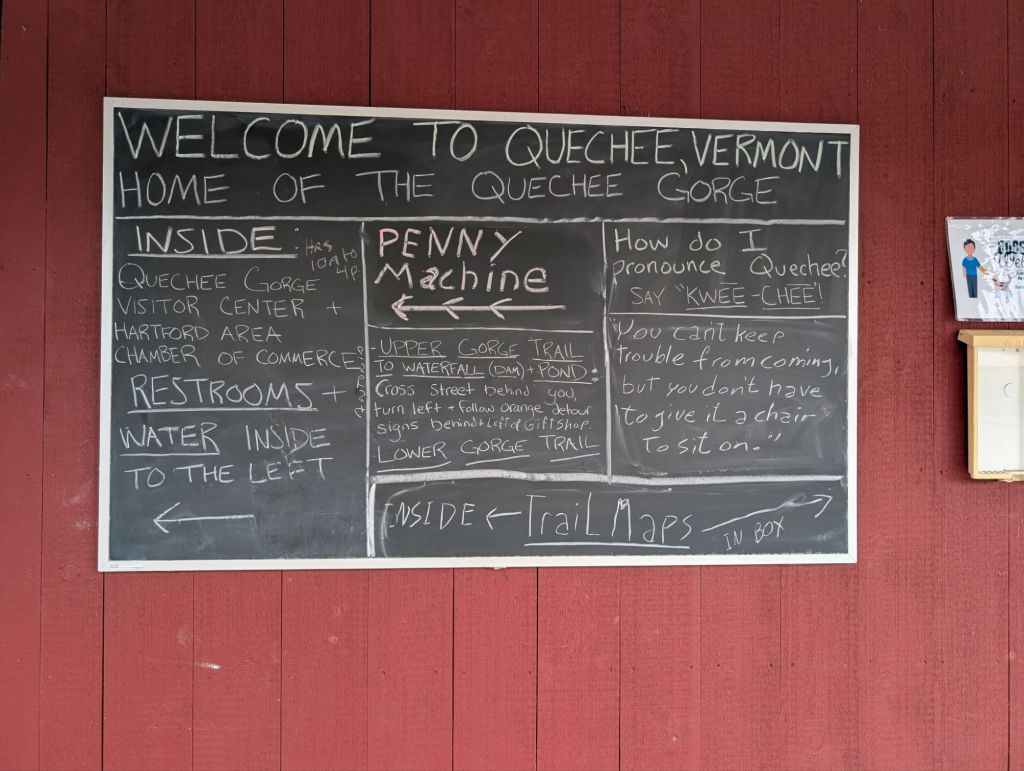 WELCOME TO QUECHEE, VERMONT
HOME OF THE QUECHEE GORGE
INSIDE:
HRS
10A to
4P
QUECHEE GORGE
VISITOR CENTER +
HARTFORD AREA
CHAMBER OF COMMERCE
RESTROOMS +
WATER INSIDE
TO THE LEFT
PENNY
Machine
UPPER GORGE TRAIL
TO WATERFALL (DAM) + POND:
Cross Street behind you,
turn left + follow orange detour
signs behind + Left of Giftshop.
LOWER GORGE TRAIL
How do I
pronounce Quechee?
SAY "KWEE-CHEE"!
"You can't keep
trouble from coming,
but you don't have
to give it a chair
To sit on."
INSIDE ← TraiL Maps
IN BOX